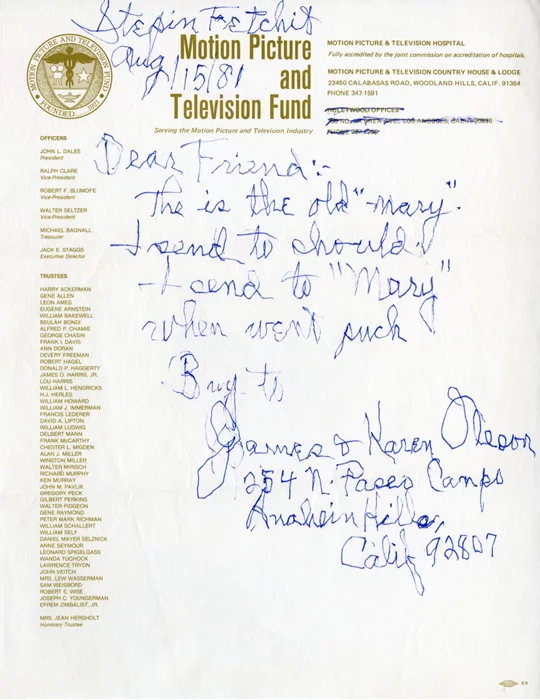 Stepin Fetchit
Aug/15/81
MOTION PICTURE AND TELEVISION FUND
FOUNDED 1921
Motion Picture
and
Television Fund
Serving the Motion Picture and Television Industry
MOTION PICTURE & TELEVISION HOSPITAL
Fully accredited by the joint commission on accreditation of hospitals.
MOTION PICTURE & TELEVISION COUNTRY HOUSE & LODGE
23450 CALABASAS ROAD, WOODLAND HILLS, CALIF. 91364
PHONE 347-1591
HOLLYWOOD OFFICES
LOS ANGELES, CALIF.
PHONE
OFFICERS
JOHN L. DALES
President
RALPH CLARE
Vice-President
ROBERT F. BLUMOFE
Vice-President
WALTER SELTZER
Vice-President
MICHAEL BAGNALL
Treasurer
JACK E. STAGGS
Executive Director
TRUSTEES
HARRY ACKERMAN
GENE ALLEN
LEON AMES
EUGENE ARNSTEIN
WILLIAM BAKEWELL
BEULAH BONDI
ALFRED P. CHAMIE
GEORGE CHASIN
FRANK I. DAVIS
ANN DORAN
DEVERY FREEMAN
ROBERT HAGEL
DONALD P. HAGGERTY
JAMES O. HARRIS, JR.
LOU HARRIS
WILLIAM L. HENDRICKS
H.J. HERLES
WILLIAM HOWARD
WILLIAM J. IMMERMAN
FRANCIS LEDERER
DAVID A. LIPTON
WILLIAM LUDWIG
DELBERT MANN
FRANK McCARTHY
CHESTER L. MIGDEN
ALAN J. MILLER
WINSTON MILLER
WALTER MIRISCH
RICHARD MURPHY
KEN MURRAY
JOHN M. PAVLIK
GREGORY PECK
GILBERT PERKINS
WALTER PIDGEON
GENE RAYMOND
PETER MARK RICHMAN
WILLIAM SCHALLERT
WILLIAM SELF
DANIEL MAYER SELZNICK
ANNE SEYMOUR
LEONARD SPIGELGASS
WANDA TUCHOCK
LAWRENCE TRYON
JOHN VEITCH
MRS. LEW WASSERMAN
SAM WEISBORD
ROBERT E. WISE
JOSEPH C. YOUNGERMAN
EFREM ZIMBALIST, JR.
MRS. JEAN HERSHOLT
Honorary Trustee
Dear Friend:-
The is the old "Mary"
I send to should
I send to "Mary"
when went
to
James & Karen Oleson
254 N. Paseo Campo
Anaheim Hills,
Calif 92807